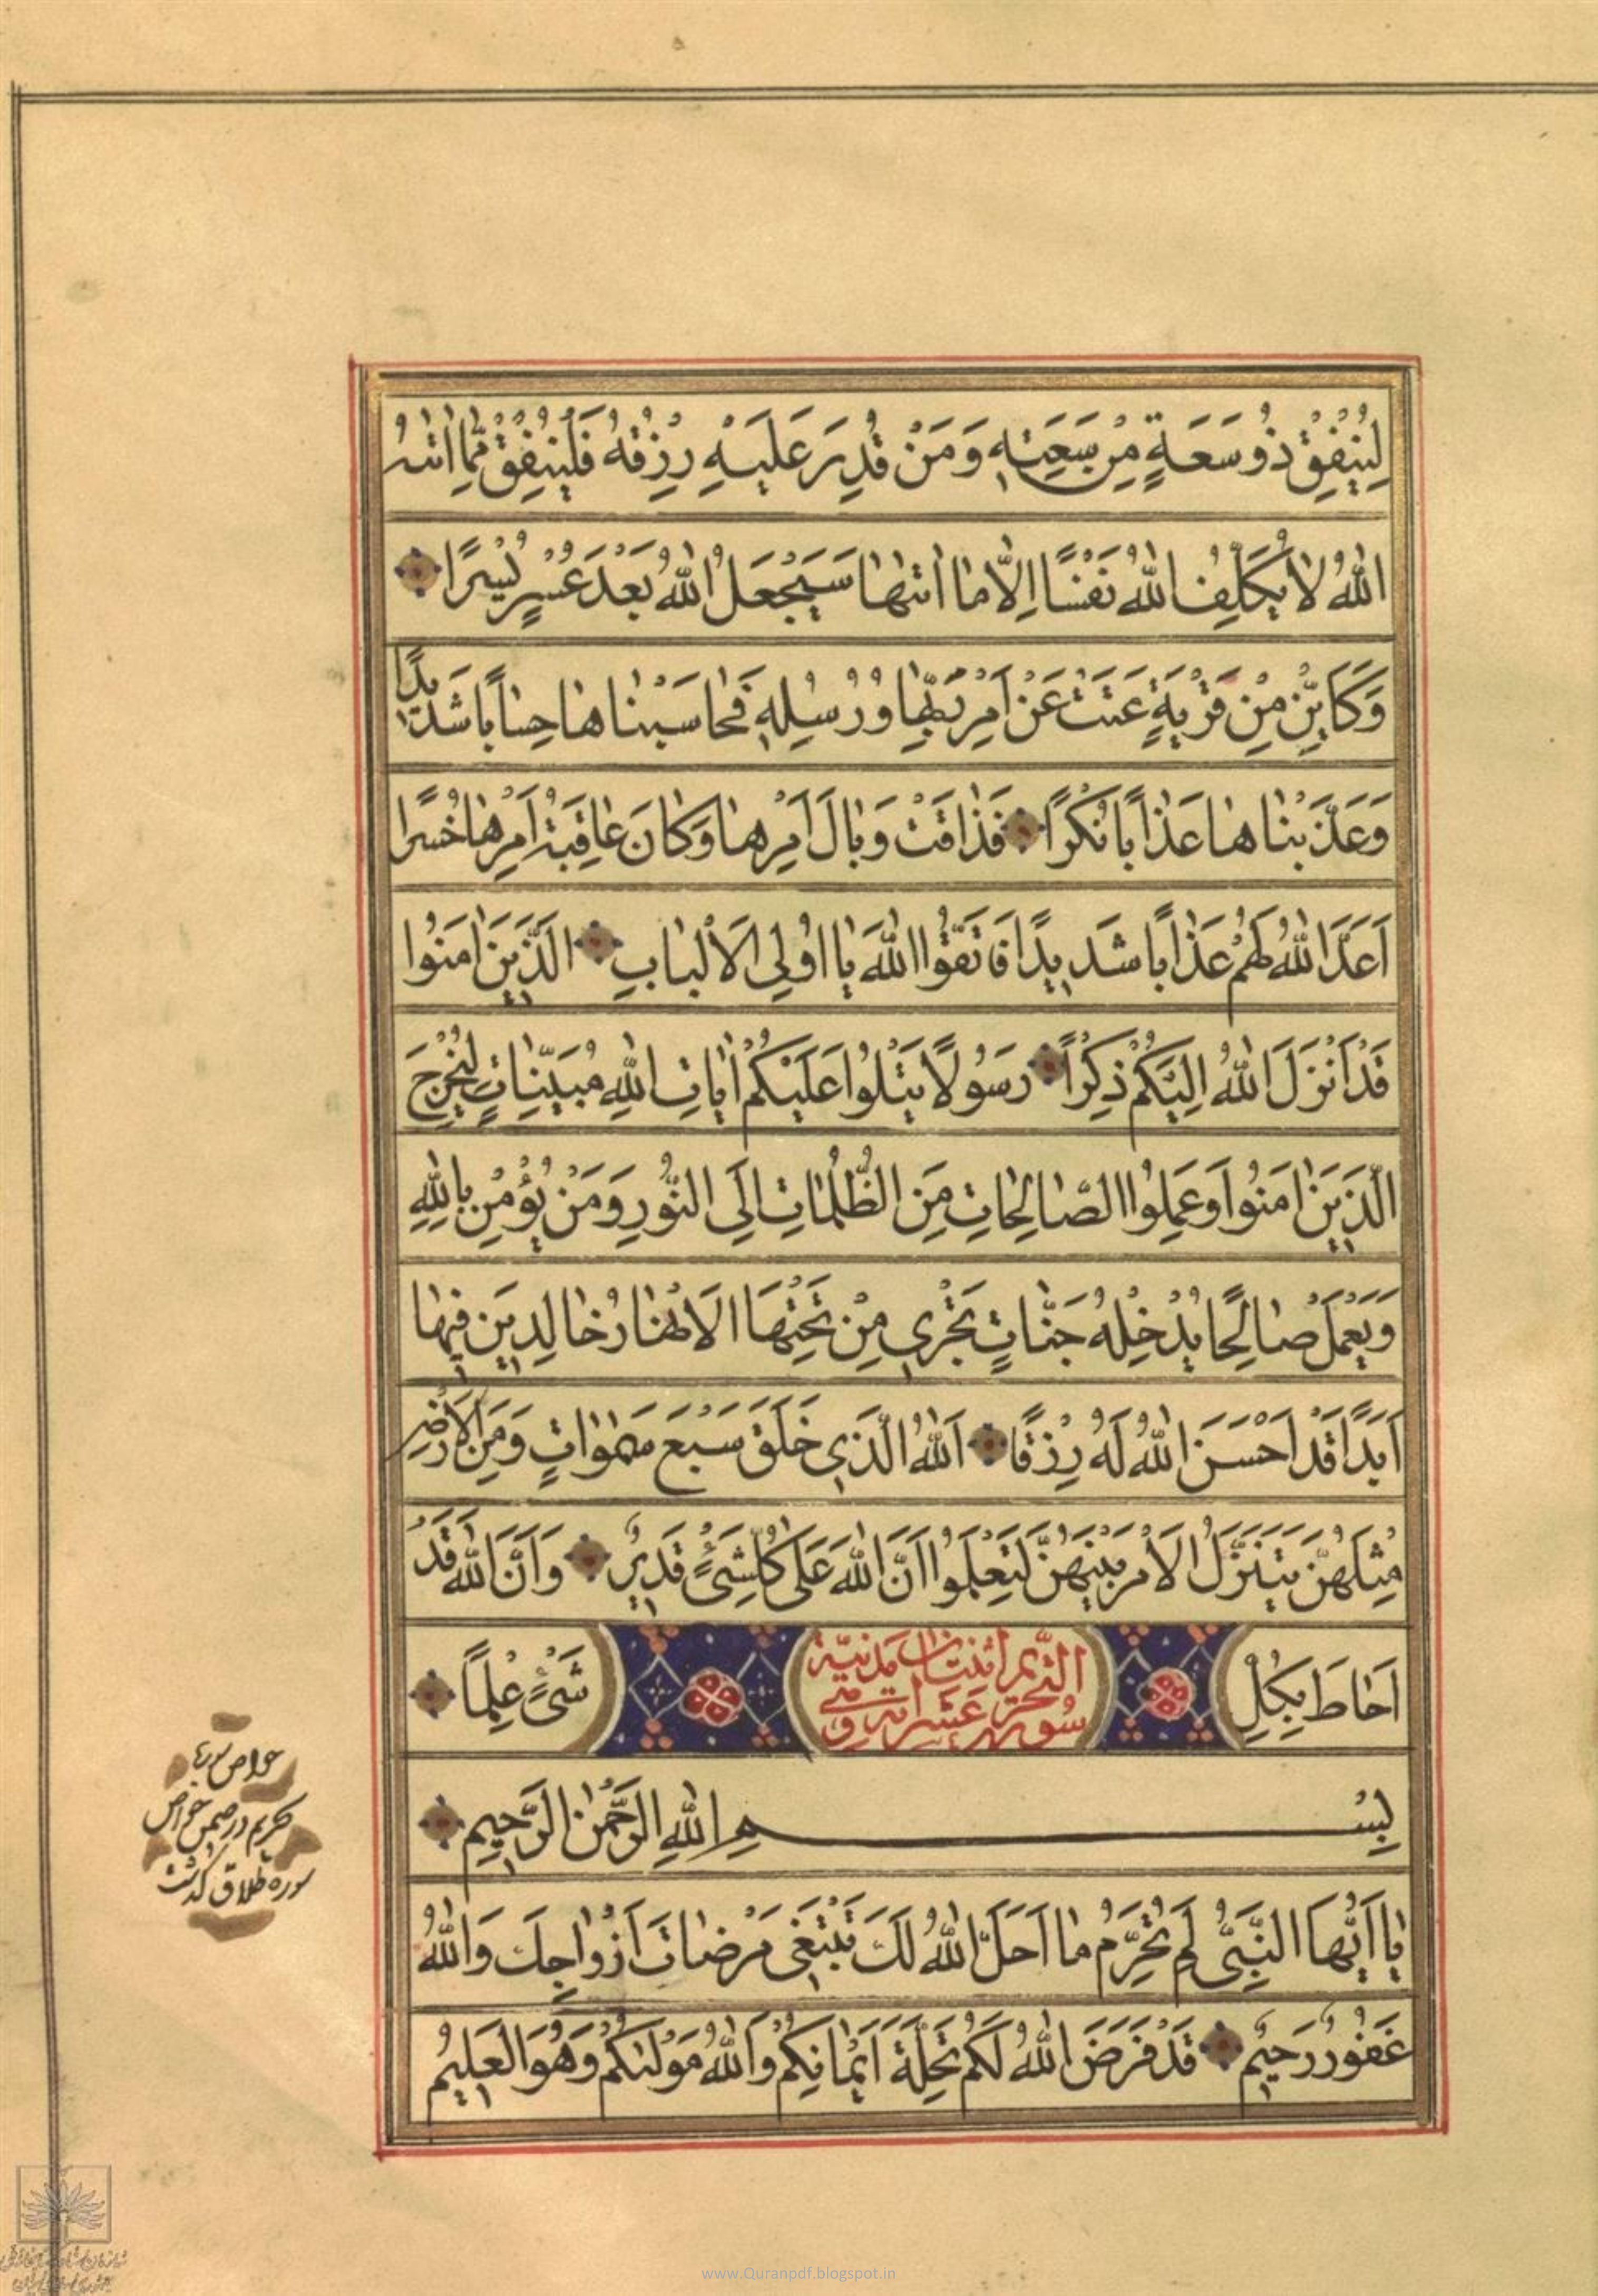 لِيُنْفِقْ ذُو سَعَةٍ مِنْ سَعَتِهٖ وَمَنْ قُدِرَ عَلَيْهِ رِزْقُهُ فَلْيُنْفِقْ مِمّٰا اٰتٰىهُ
اللّٰهُ لاٰ يُكَلِّفُ اللّٰهُ نَفْسًا اِلّاٰ مٰا اٰتٰىهٰا سَيَجْعَلُ اللّٰهُ بَعْدَ عُسْرٍ يُسْرًا
وَكَاَيِّنْ مِنْ قَرْيَةٍ عَتَتْ عَنْ اَمْرِ رَبِّهٰا وَرُسُلِهٖ فَحٰاسَبْنٰاهٰا حِسٰابًا شَدٖيدًا
وَعَذَّبْنٰاهٰا عَذٰابًا نُكْرًا فَذٰاقَتْ وَبٰالَ اَمْرِهٰا وَكٰانَ عٰاقِبَةُ اَمْرِهٰا خُسْرًا
اَعَدَّ اللّٰهُ لَهُمْ عَذٰابًا شَدٖيدًا فَاتَّقُوا اللّٰهَ يٰا اُولِي الْاَلْبٰابِ الَّذٖينَ اٰمَنُوا
قَدْ اَنْزَلَ اللّٰهُ اِلَيْكُمْ ذِكْرًا رَسُولًا يَتْلُوا عَلَيْكُمْ اٰيٰاتِ اللّٰهِ مُبَيِّنٰاتٍ لِيُخْرِجَ
الَّذٖينَ اٰمَنُوا وَعَمِلُوا الصّٰالِحٰاتِ مِنَ الظُّلُمٰاتِ اِلَى النُّورِ وَمَنْ يُؤْمِنْ بِاللّٰهِ
وَيَعْمَلْ صٰالِحًا يُدْخِلْهُ جَنّٰاتٍ تَجْرٖي مِنْ تَحْتِهَا الْاَنْهٰارُ خٰالِدٖينَ فٖيهٰا
اَبَدًا قَدْ اَحْسَنَ اللّٰهُ لَهُ رِزْقًا اَللّٰهُ الَّذٖي خَلَقَ سَبْعَ سَمٰوٰاتٍ وَمِنَ الْاَرْضِ
مِثْلَهُنَّ يَتَنَزَّلُ الْاَمْرُ بَيْنَهُنَّ لِتَعْلَمُوا اَنَّ اللّٰهَ عَلٰى كُلِّ شَيْءٍ قَدٖيرٌ وَاَنَّ اللّٰهَ قَدْ
اَحٰاطَ بِكُلِّ شَيْءٍ عِلْمًا
سورة التحريم اثنتان عشر اية وهي مدنيّة
بِسْمِ اللّٰهِ الرَّحْمٰنِ الرَّحٖيمِ
يٰا اَيُّهَا النَّبِيُّ لِمَ تُحَرِّمُ مٰا اَحَلَّ اللّٰهُ لَكَ تَبْتَغٖي مَرْضٰاتَ اَزْوٰاجِكَ وَاللّٰهُ
غَفُورٌ رَحٖيمٌ قَدْ فَرَضَ اللّٰهُ لَكُمْ تَحِلَّةَ اَيْمٰانِكُمْ وَاللّٰهُ مَوْلٰىكُمْ وَهُوَ الْعَلٖيمُ
خواص سوره
تحريم در ضمن خواص
سوره طلاق گذشت
www.Quranpdf.blogspot.in